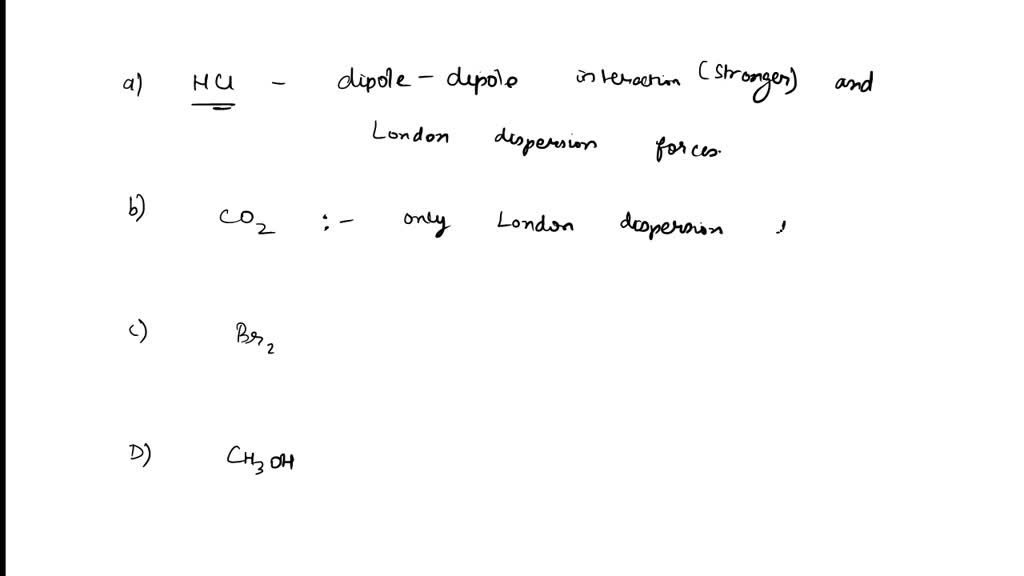 a) HCl - dipole - dipole interaction (stronger) and
London dispersion forces.
b) CO2 :- only London dispersion
c) Br2
D) CH3OH